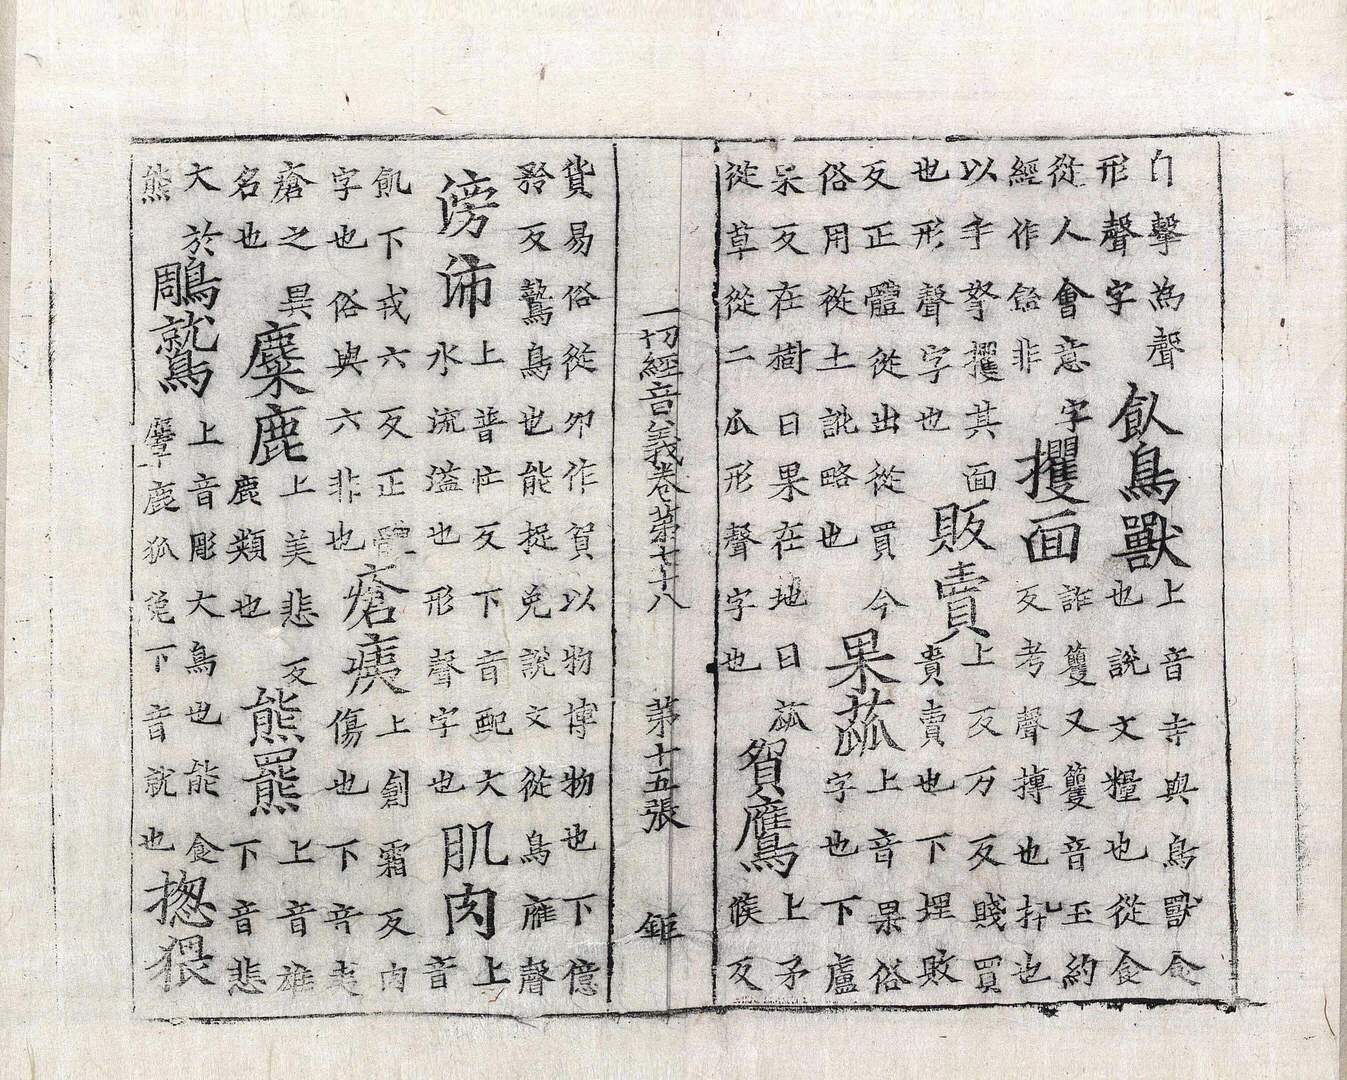 卩擊為聲
形聲字
飤鳥獸
上音寺與鳥獸食
也說文糧也從食
從人會意字
經作飴非
攫面
詐籰又籰音王約
反考聲搏也扟也
以手拏攫其面
也形聲字也
販賣
上反万反賤買
貴賣也下埋敗
反正體從出從買今
俗用從土訛略也
果蓏
上音果俗
字也下盧
果反在樹曰果在地曰蓏
從草從二瓜形聲字也
貿鷹
上矛
候反
一切經音義卷第七十八 第十五張 鉅
貨易俗從卯作貿以物博物也下億
矜反鷙鳥也能捉兔說文從鳥雁聲
滂沛
上普忙反下音配大
水流溢也形聲字也
肌肉
上音
飢下戎六反正體
字也俗與六非也
瘡痍
上創霜反肉
傷也下音夷
瘡之異
名也
麋鹿
上美悲反
鹿類也
熊羆
上音雄
下音悲
大於
熊
鵰鷲
上音彫大鳥也能食
麞鹿狐兔下音就也
揔猥